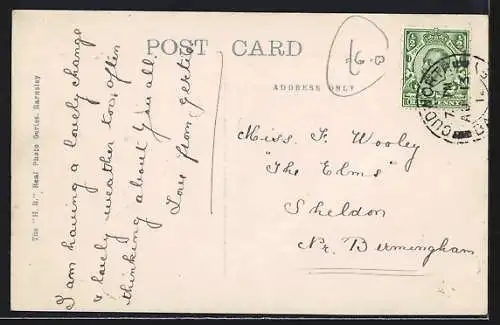 POST CARD
ADDRESS ONLY
The "H. B." Real Photo Series. Barnsley
I am having a lovely change
& lovely weather too, often
thinking about you all.
Love from Gertie
Miss. F. Wooley
"The Elms"
Sheldon
Nr. Birmingham
CUDWORTH
BARNSLEY